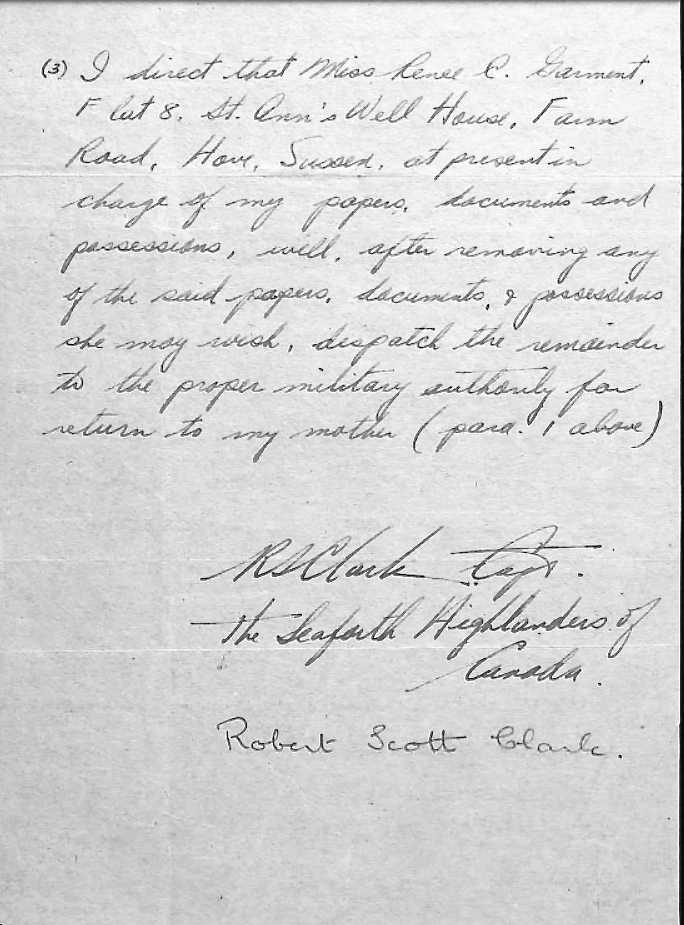 (3) I direct that Miss Renee C. Garment,
Flat 8, St. Ann's Well House, Farm
Road, Hove, Sussex, at present in
charge of my papers, documents and
possessions, will, after removing any
of the said papers, documents, & possessions
she may wish, dispatch the remainder
to the proper military authority for
return to my mother (para. 1 above)
RSClark Capt.
The Seaforth Highlanders of
Canada.
Robert Scott Clark.